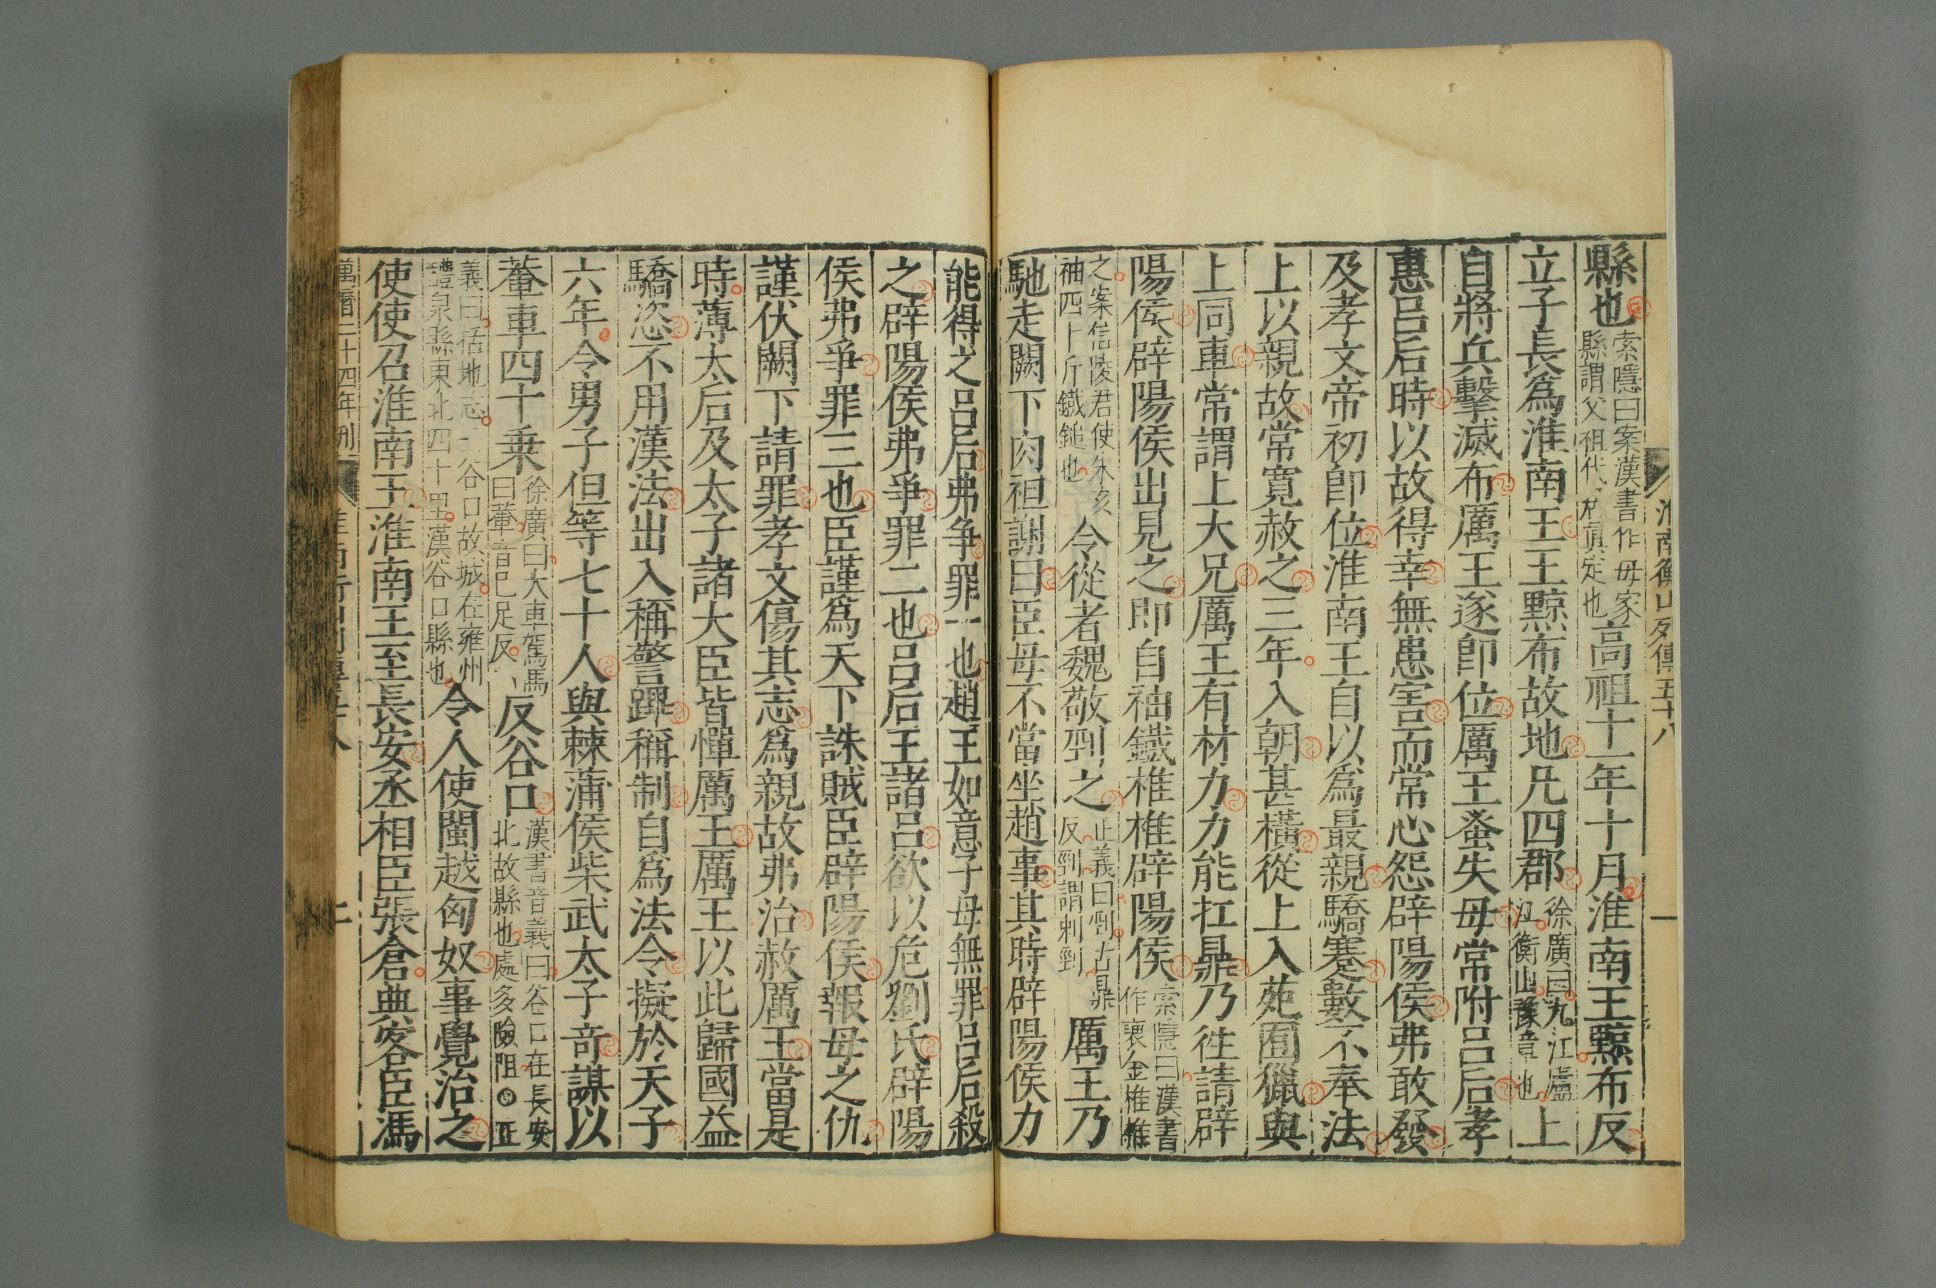 淮南衡山列傳五十八
一
縣也索隱曰案漢書作母家縣謂父祖代居真定也高祖十一年十月淮南王黥布反
立子長爲淮南王王黥布故地凡四郡徐廣曰九江廬江衡山豫章也上
自將兵擊滅布厲王遂即位厲王蚤失母常附呂后孝
惠呂后時以故得幸無患害而常心怨辟陽侯弗敢發
及孝文帝初即位淮南王自以爲最親驕蹇數不奉法
上以親故常寬赦之三年入朝甚橫從上入苑囿獵與
上同車常謂上大兄厲王有材力力能扛鼎乃往請辟
陽侯辟陽侯出見之即自袖鐵椎椎辟陽侯索隱曰漢書作褏金椎椎
之案信陵君使朱亥袖四十斤鐵鎚也令從者魏敬剄之正義曰剄古鼎反剄謂刺頸厲王乃
馳走闕下肉袒謝曰臣母不當坐趙事其時辟陽侯力
能得之呂后弗爭罪一也趙王如意子母無罪呂后殺
之辟陽侯弗爭罪二也呂后王諸呂欲以危劉氏辟陽
侯弗爭罪三也臣謹爲天下誅賊臣辟陽侯報母之仇
謹伏闕下請罪孝文傷其志爲親故弗治赦厲王當是
時薄太后及太子諸大臣皆憚厲王厲王以此歸國益
驕恣不用漢法出入稱警蹕稱制自爲法令擬於天子
六年令男子但等七十人與棘蒲侯柴武太子奇謀以
輂車四十乘徐廣曰大車駕馬曰輂音己足反反谷口漢書音義曰谷口在長安北故縣也處多險阻○正
義曰括地志云谷口故城在雍州醴泉縣東北四十里漢谷口縣也令人使閩越匈奴事覺治之
使使召淮南王淮南王至長安丞相臣張倉典客臣馮
萬曆二十四年刊
二